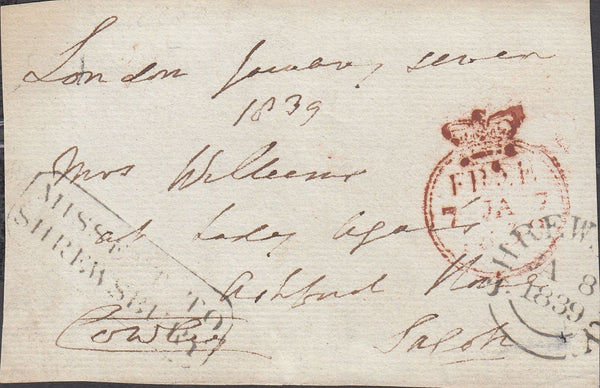 London January seven
1839
Mrs Williams
at Lady
Ashford
Cowley
Salop
MISSENT TO
SHREWSBURY
FREE
7 JA 7
SHREW
JA 8
1839